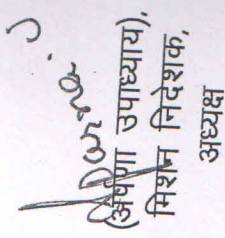 (अर्पणा उपाध्याय),
मिशन निदेशक,
अध्यक्ष